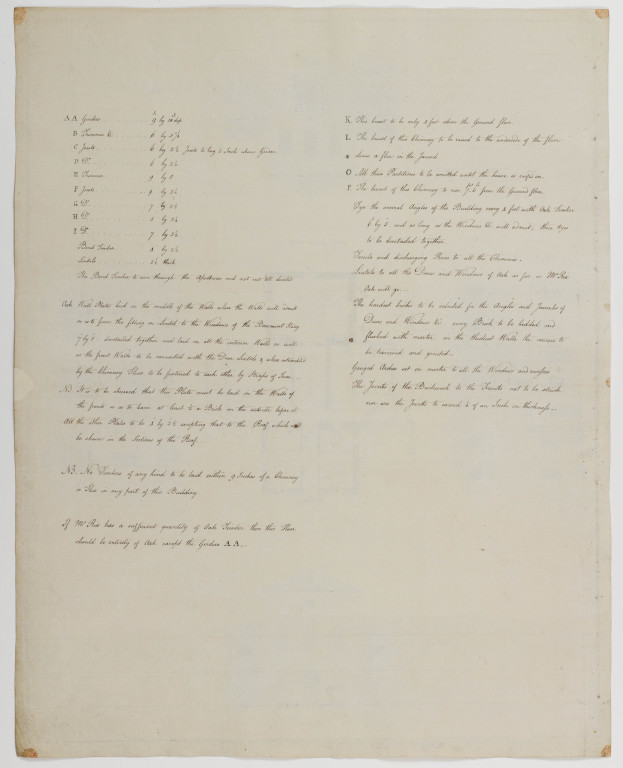 A A Girders . . . 9 by 12 deep
B Trimmers &c . . . 6 by 3½
C Joists . . . 6 by 2½ Joists to lay 3 Inch above Girders
D Do . . . 6 by 2½
E Trimmers . . . 9 by 3
F Joists . . . 9 by 2½
G Do . . . 7 by 2½
H Do . . . by 2½
I Do . . . 7 by 2½
Bond Timber . . . 4 by 2½
Lintels . . . thick
The Bond Timber to run through the Apertures and not cut till
Oak Wall Plates laid in the middle of the Walls where the Walls will admit
so as to form the or Lintel to the Windows of the Basement Story
7 by 5 dovetailed together and laid on all the interior Walls as well
as the front Walls to be connected with the Door Lintels & when intersected
by the Chimney Flues to be fastened to each other by Straps of Iron
NB. It is to be observed that this Plate must be laid in the Walls of
the fronts so as to have at least to a Brick on the outside before it
All the other Plates to be 4 by 2½ excepting that to the Roof which will
be shewn in the Sections of the Roof.
NB. No Timbers of any kind to be laid within 9 Inches of a Chimney
or Flue in any part of this Building
If Mr Rae has a sufficient quantity of Oak Timber then this Floor
should be entirely of Oak except the Girders A A.
K This breast to be only 4 feet above the Ground floor
L The breast of this Chimney to be raised to the underside of the floor
above a flue in the
O All these Partitions to be omitted until the house is roofed in
P The breast of this Chimney to run from the Ground floor
Tye the several Angles of the Building every 4 feet with Oak Timber
6 by 3 and as long as the Windows &c will admit, these tyes
to be dovetailed together
Turn and discharging Piers to all the Chimneys.
Lintels to all the Doors and Windows of Oak as far as Mr Rae
Oak will go
The hardest bricks to be selected for the Angles and Jaumbs of
Doors and Windows &c every Brick to be bedded and
flushed with mortar, in the thickest Walls the courses to
be trowelled and grouted
Gauged Arches set in mortar to all the Windows
The Joints of the Brickwork to the Fronts not to be struck
nor are the Joints to exceed ¼ of an Inch in thickness